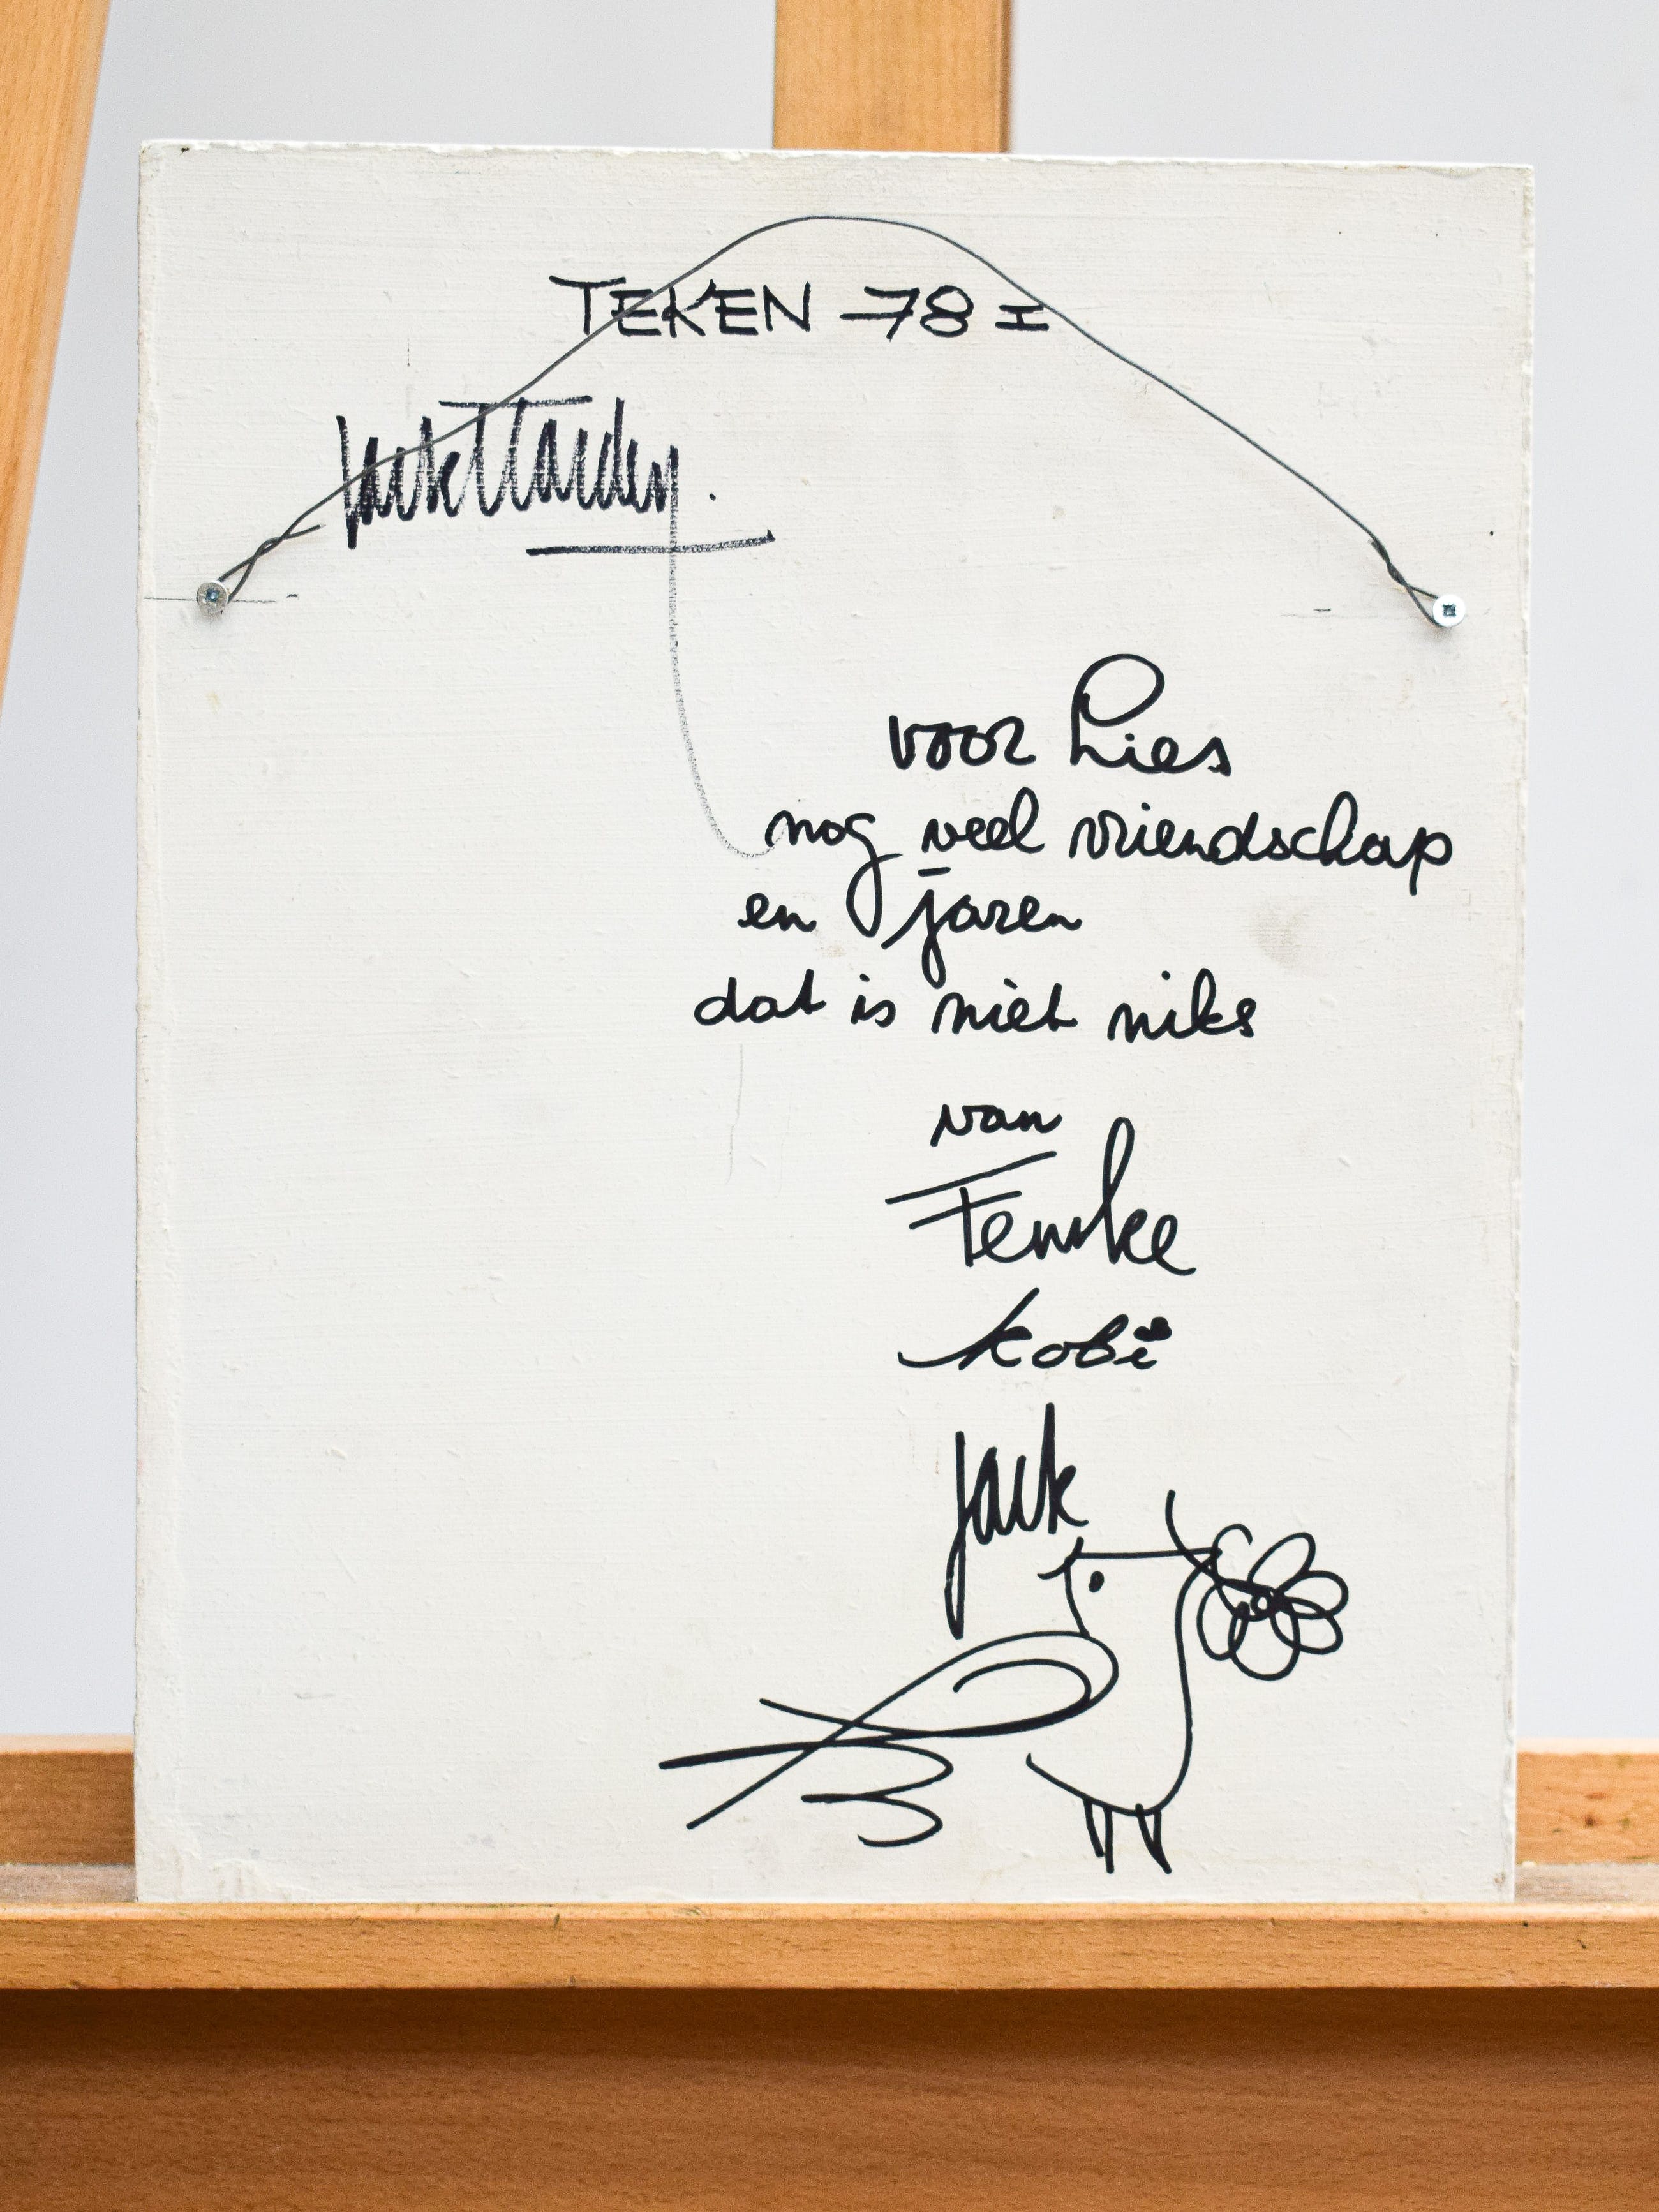 TEKEN 78 I
Jack
voor Lies
nog veel vriendschap
en jaren
dat is niet niks
van
Femke
Kobi
Jack